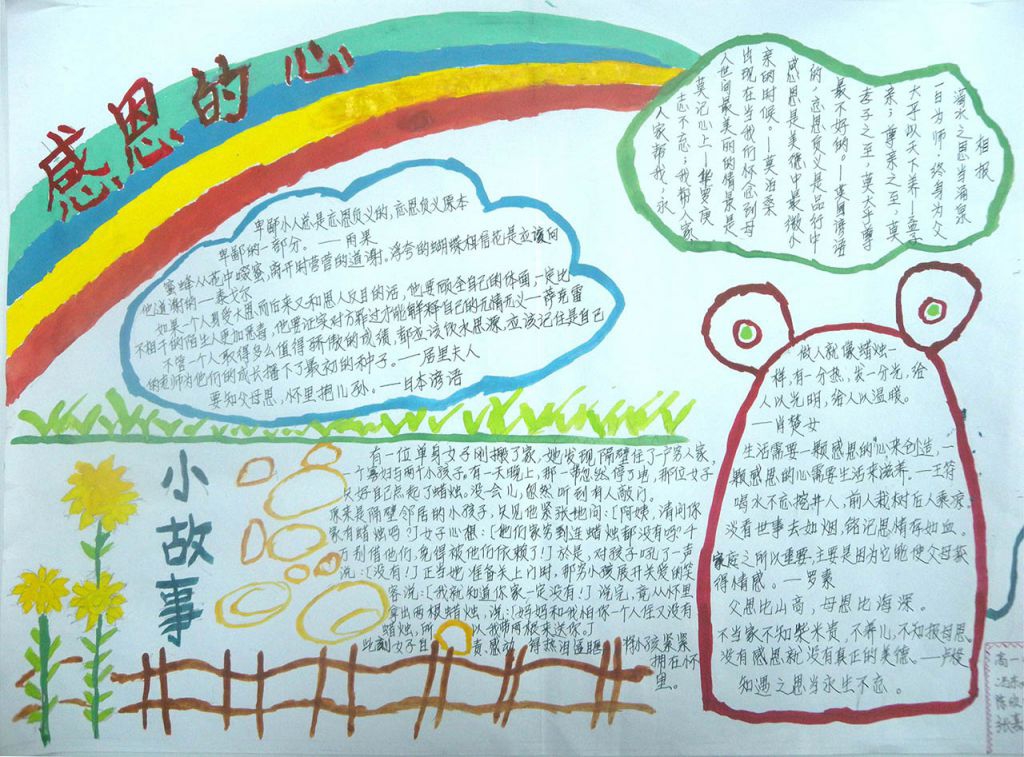 感恩的心
卑鄙小人总是忘恩负义的,忘恩负义原本
卑鄙的一部分。——雨果
蜜蜂从花中啜蜜,离开时营营的道谢。浮夸的蝴蝶相信花是应该向
他道谢的——泰戈尔
如果一个人身受大恩而后来又和恩人反目的话,他要顾全自己的体面,一定比
不相干的陌生人更加恶毒,他要证实对方罪过才能解释自己的无情无义——莎克雷
不管一个人取得多么值得骄傲的成绩,都应该饮水思源,应该记住是自己
的老师为他们的成长播下了最初的种子。——居里夫人
要知父母恩,怀里抱儿孙。——日本谚语
滴水之恩当涌泉
相报
一日为师,终身为父
大孝以天下养——孟子
亲;尊亲之至,莫
孝子之至,莫大乎尊
最不好的。——英国谚语
的,忘恩负义是品行中
感恩是美德中最微小
亲的时候。——莫泊桑
出现在当我们怀念到母
人世间最美丽的情景是
莫记心上——华罗庚
忘不忘;我帮人家
人家帮我,永
做人就像蜡烛一
样,有一分热,发一分光,给
人以光明,给人以温暖。
——肖楚女
生活需要一颗感恩的心来创造,一
颗感恩的心需要生活来滋养。——王符
喝水不忘挖井人,前人栽树后人乘凉
淡看世事去如烟,铭记恩情存如血。
家庭之所以重要,主要是因为它能使父母获
得情感。——罗素
父恩比山高,母恩比海深。
不当家不知柴米贵,不养儿,不知报母恩。
没有感恩就没有真正的美德。——卢梭
知遇之恩当永生不忘。
小故事
有一位单身女子刚搬了家,她发现隔壁住了一户穷人家
一个寡妇与两个小孩子。有一天晚上,那一带忽然停了电,那位女子
只好自己点起了蜡烛。没一会儿,忽然听到有人敲门。
原来是隔壁邻居的小孩子,只见他紧张地问:「阿姨,请问你
家有蜡烛吗?」女子心想:「他们家穷到连蜡烛都没有吗?千
万别借他们,免得被他们依赖了!」于是,对孩子吼了一声
说:「没有!」正当她准备关上门时,那穷小孩展开关爱的笑
容说:「我就知道你家一定没有!」说完,竟从怀里
拿出两根蜡烛,说:「妈妈和我怕你一个人住又没有
蜡烛,所以我带两根来送你。」
此刻女子自责、感动得热泪盈眶,将小孩紧紧
拥在怀
里。
高一